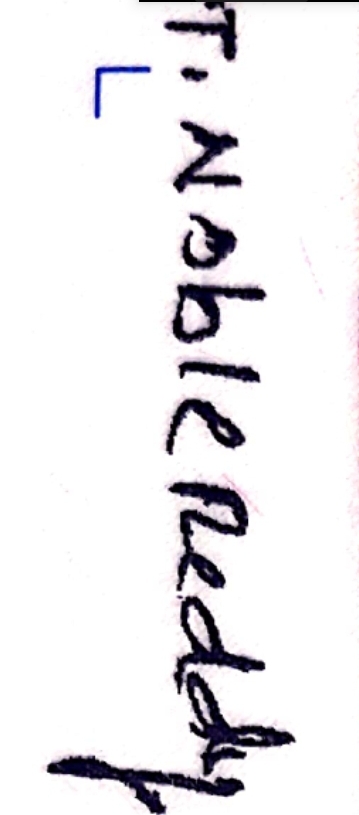 T. Noble Reddy